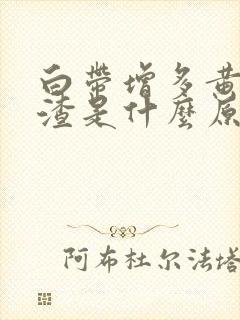 白带增多黄
渣是什麼原
阿布杜尔法塔